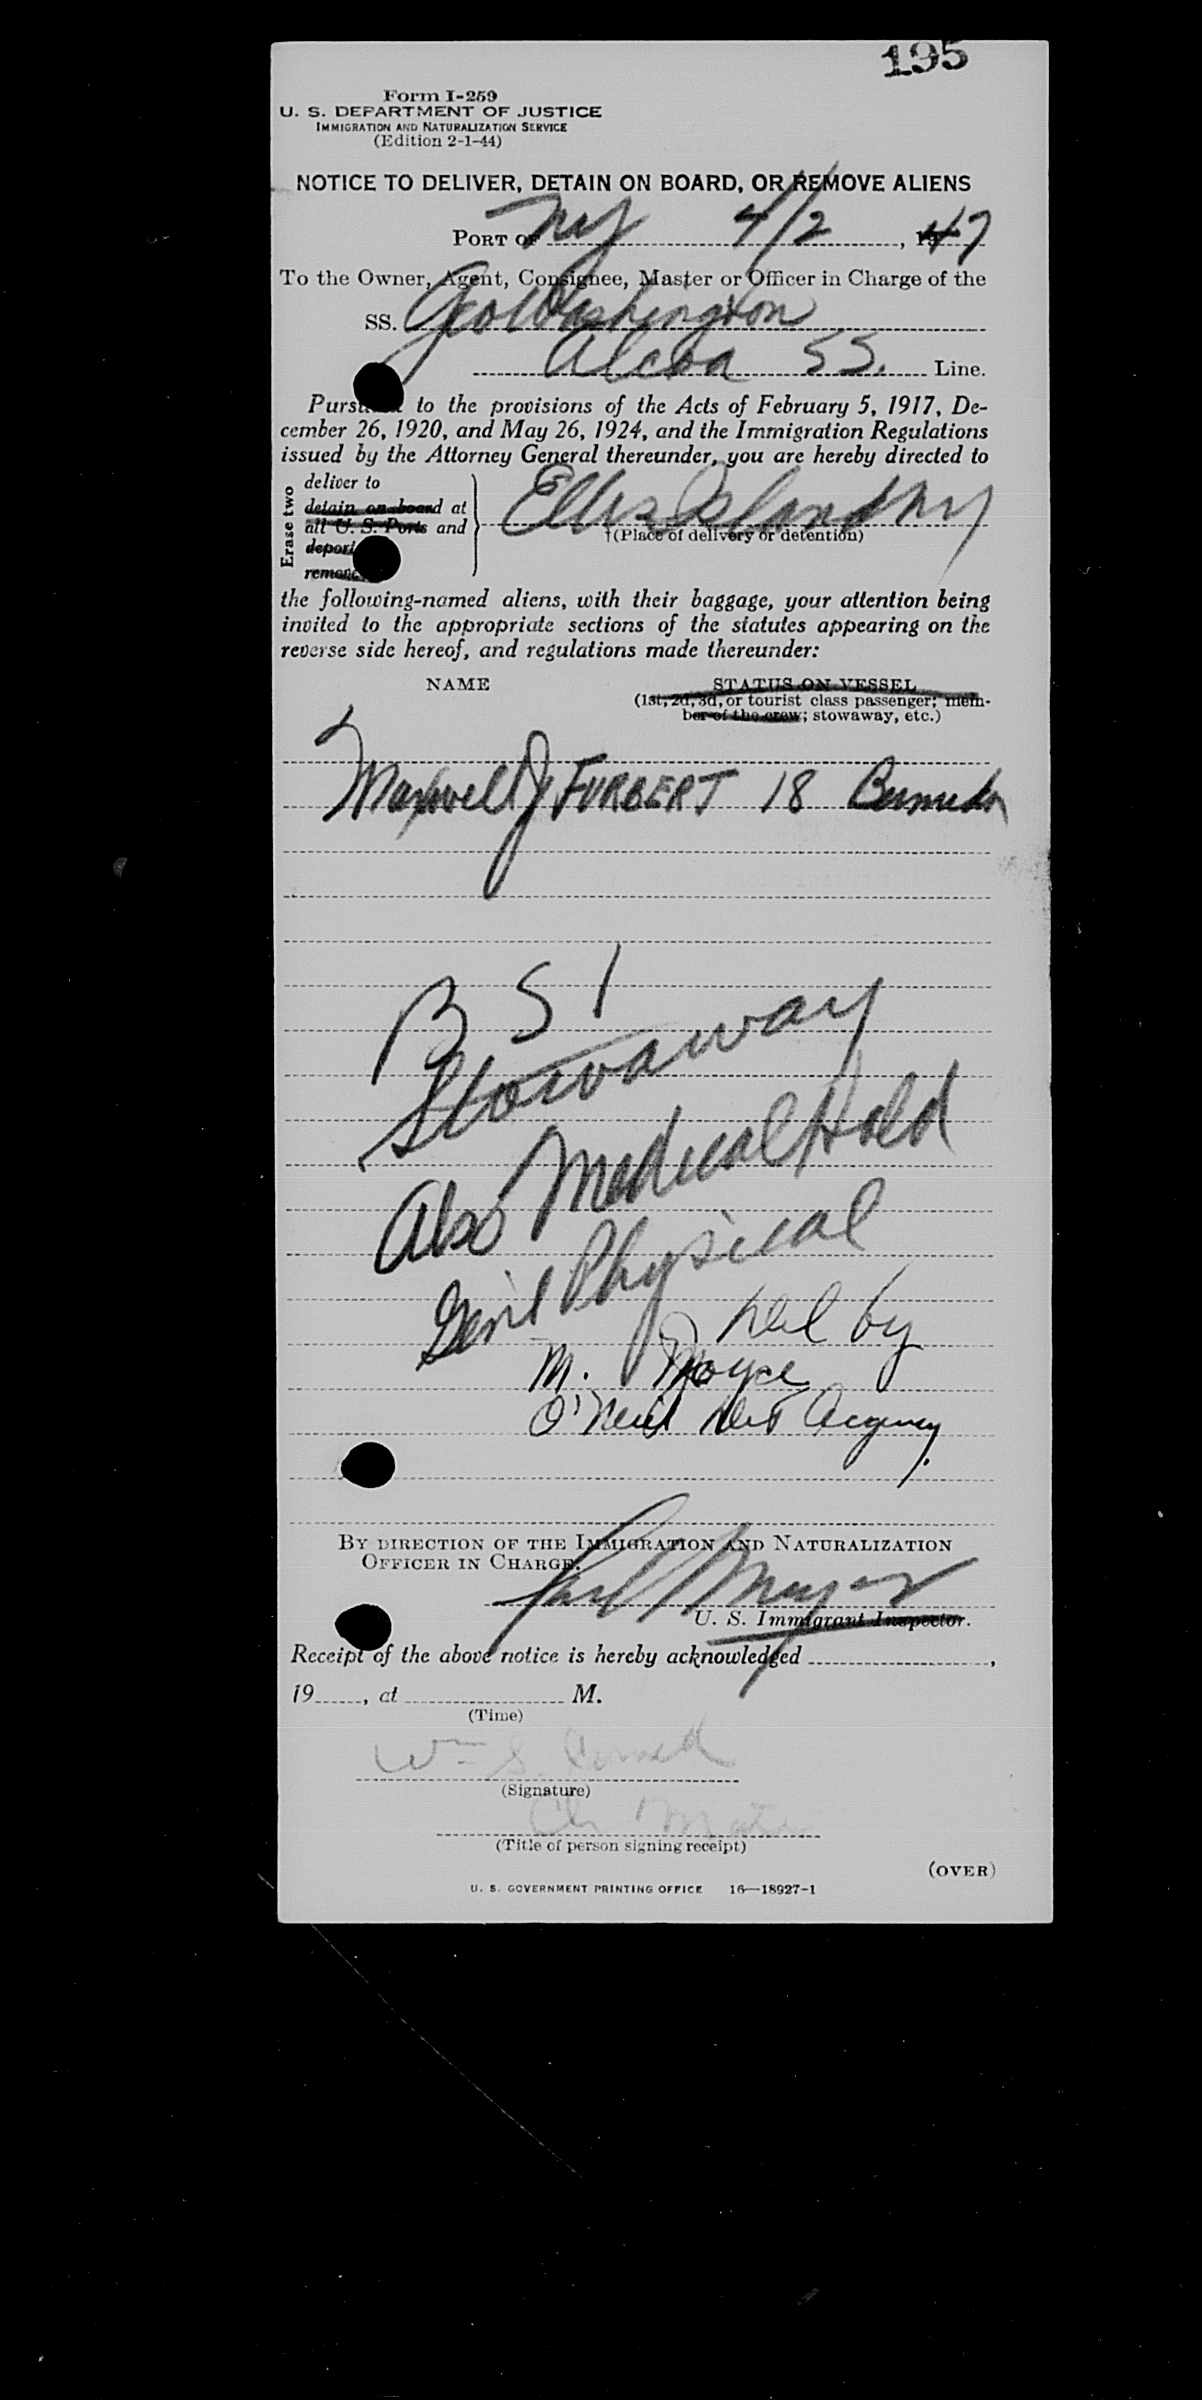 195
Form I-259
U. S. DEPARTMENT OF JUSTICE
IMMIGRATION AND NATURALIZATION SERVICE
(Edition 2-1-44)
NOTICE TO DELIVER, DETAIN ON BOARD, OR REMOVE ALIENS
PORT OF NY 4/2, 1947
To the Owner, Agent, Consignee, Master or Officer in Charge of the
SS. Geo Washington
Alcoa SS. Line.
Pursuant to the provisions of the Acts of February 5, 1917, De-
cember 26, 1920, and May 26, 1924, and the Immigration Regulations
issued by the Attorney General thereunder, you are hereby directed to
Erase two
deliver to
detain on board at
all U. S. Ports and
deport
remove
Ellis Island NY
†(Place of delivery or detention)
the following-named aliens, with their baggage, your attention being
invited to the appropriate sections of the statutes appearing on the
reverse side hereof, and regulations made thereunder:
NAME STATUS ON VESSEL
(1st, 2d, 3d, or tourist class passenger; mem-
ber of the crew; stowaway, etc.)
Maxwell J FURBERT 18 Bermuda
B S I
Stowaway
Also Medical Hold
Gen'l Physical
Del by
M. Joyce
O'Neill Det Agency.
BY DIRECTION OF THE IMMIGRATION AND NATURALIZATION
OFFICER IN CHARGE.
U. S. Immigrant Inspector.
Receipt of the above notice is hereby acknowledged ,
19 , at M.
(Time)
Wm S.
(Signature)
Ch Mate
(Title of person signing receipt)
(OVER)
U. S. GOVERNMENT PRINTING OFFICE 16—18927-1